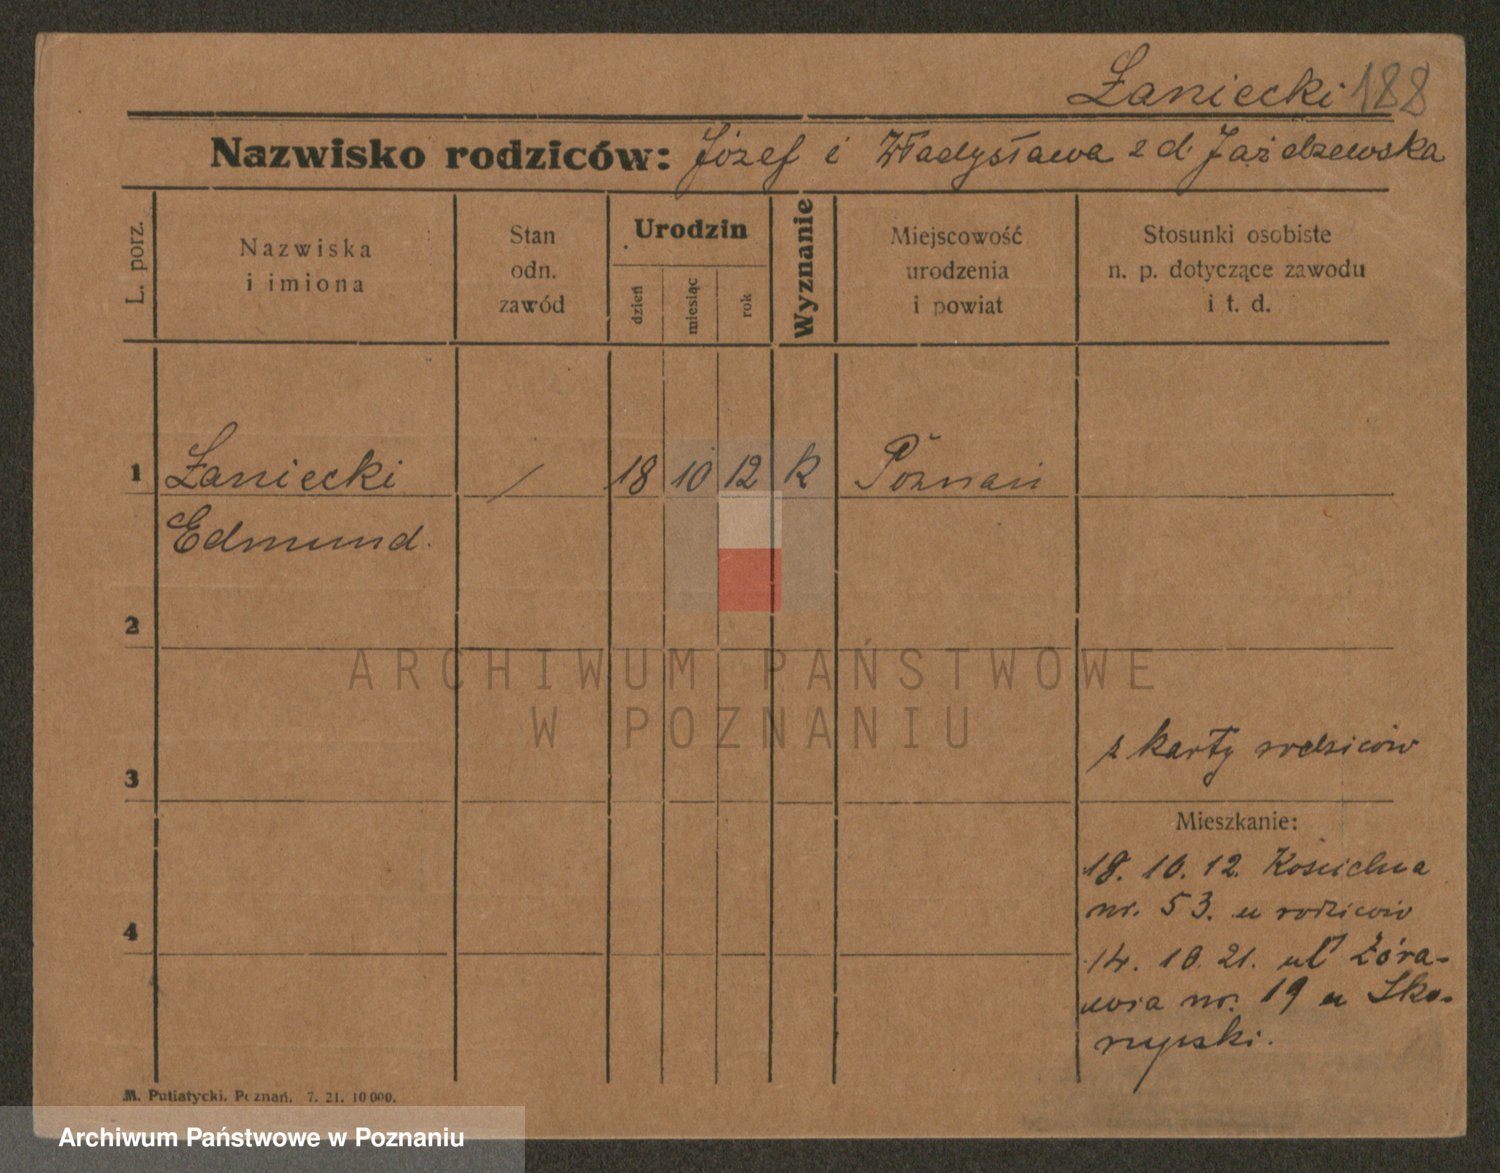 Łaniecki 188
Nazwisko rodziców: Józef i Władysława z d. Jażdzewska
L. porz.
Nazwiska
i imiona
Stan
odn.
zawód
Urodzin
dzień
miesiąc
rok
Wyznanie
Miejscowość
urodzenia
i powiat
Stosunki osobiste
n. p. dotyczące zawodu
i t. d.
1 Łaniecki / 18 10 12 k Poznań
Edmund.
2
ARCHIWUM PAŃSTWOWE
W POZNANIU
z karty rodziców
3
Mieszkanie:
18. 10. 12. Kościelna
nr. 53. u rodziców
4
14. 10. 21. ul Żóra-
wia nr. 19 u Sko-
rupski.
M. Putiatycki, Poznań. 7. 21. 10 000.
Archiwum Państwowe w Poznaniu